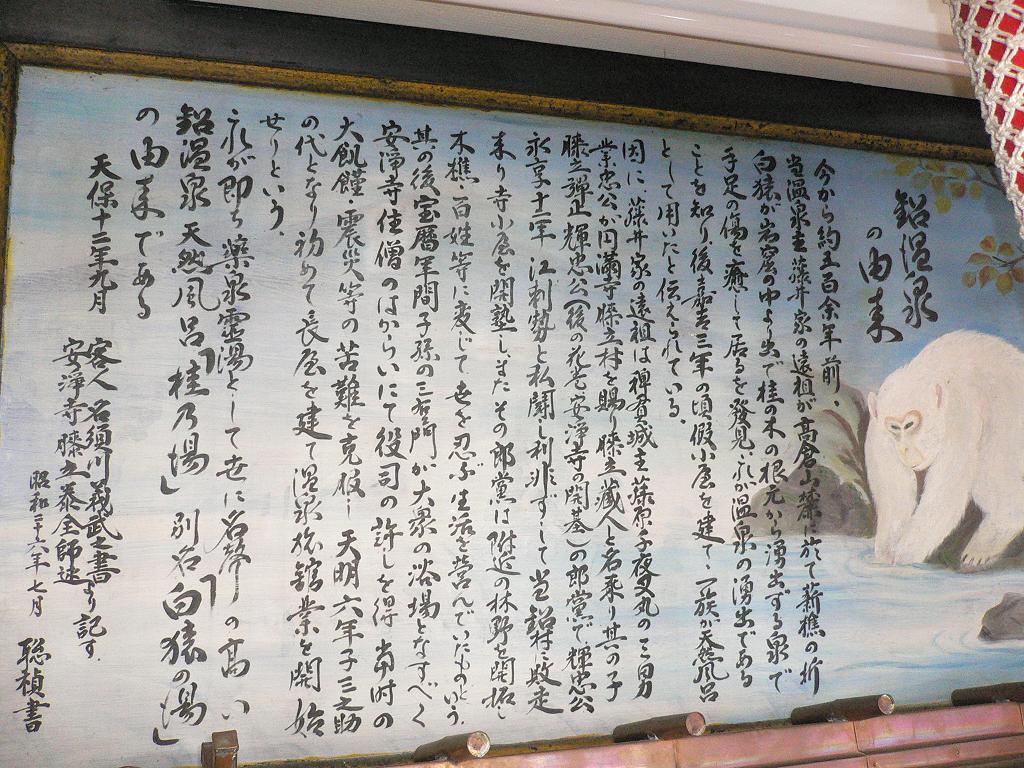 鉛温泉
の由来
今から約五百余年前、
当温泉主藤井家の遠祖が高倉山麓に於て薪樵の折
白猿が岩窟の中より出で桂の木の根元から湧出ずる泉で
手足の傷を癒して居るを發見、これが温泉の湧出である
ことを知り、後嘉吉三年の頃假小屋を建て、一族が天然風呂
として用いたと伝えられている。
因に、藤井家の遠祖は稗貫城主藤原千夜叉丸の三男
業忠公が円満寺膝立村を賜り膝立藏人と名乘り其の子
膝立弾正輝忠公(後の花巻安浄寺の開基)の郎党で輝忠公
永享十二年江刺勢と私闘し利非ずして当鉛村敗走
来り寺小屋を開塾しまたその郎黨は附近の林野を開拓し
木樵、百姓等に変じて世を忍ぶ生活を営んでいたものという。
其の後宝暦年間子孫の三右エ門が大衆の浴場となすべく
安浄寺住僧のはからいにて役司の許しを得当時の
大飢饉、震災等の苦難を克服し天明六年子三之助
の代となり初めて長屋を建て温泉旅舘業を開始
せりという。
これが即ち薬泉霊湯として世に名聲の高い
鉛温泉天然風呂「桂乃湯」別名「白猿の湯」
の由来である
天保十二年九月
客人名須川義武之書より記す。
安浄寺膝立泰全師述
昭和三十六年七月
聡禎書